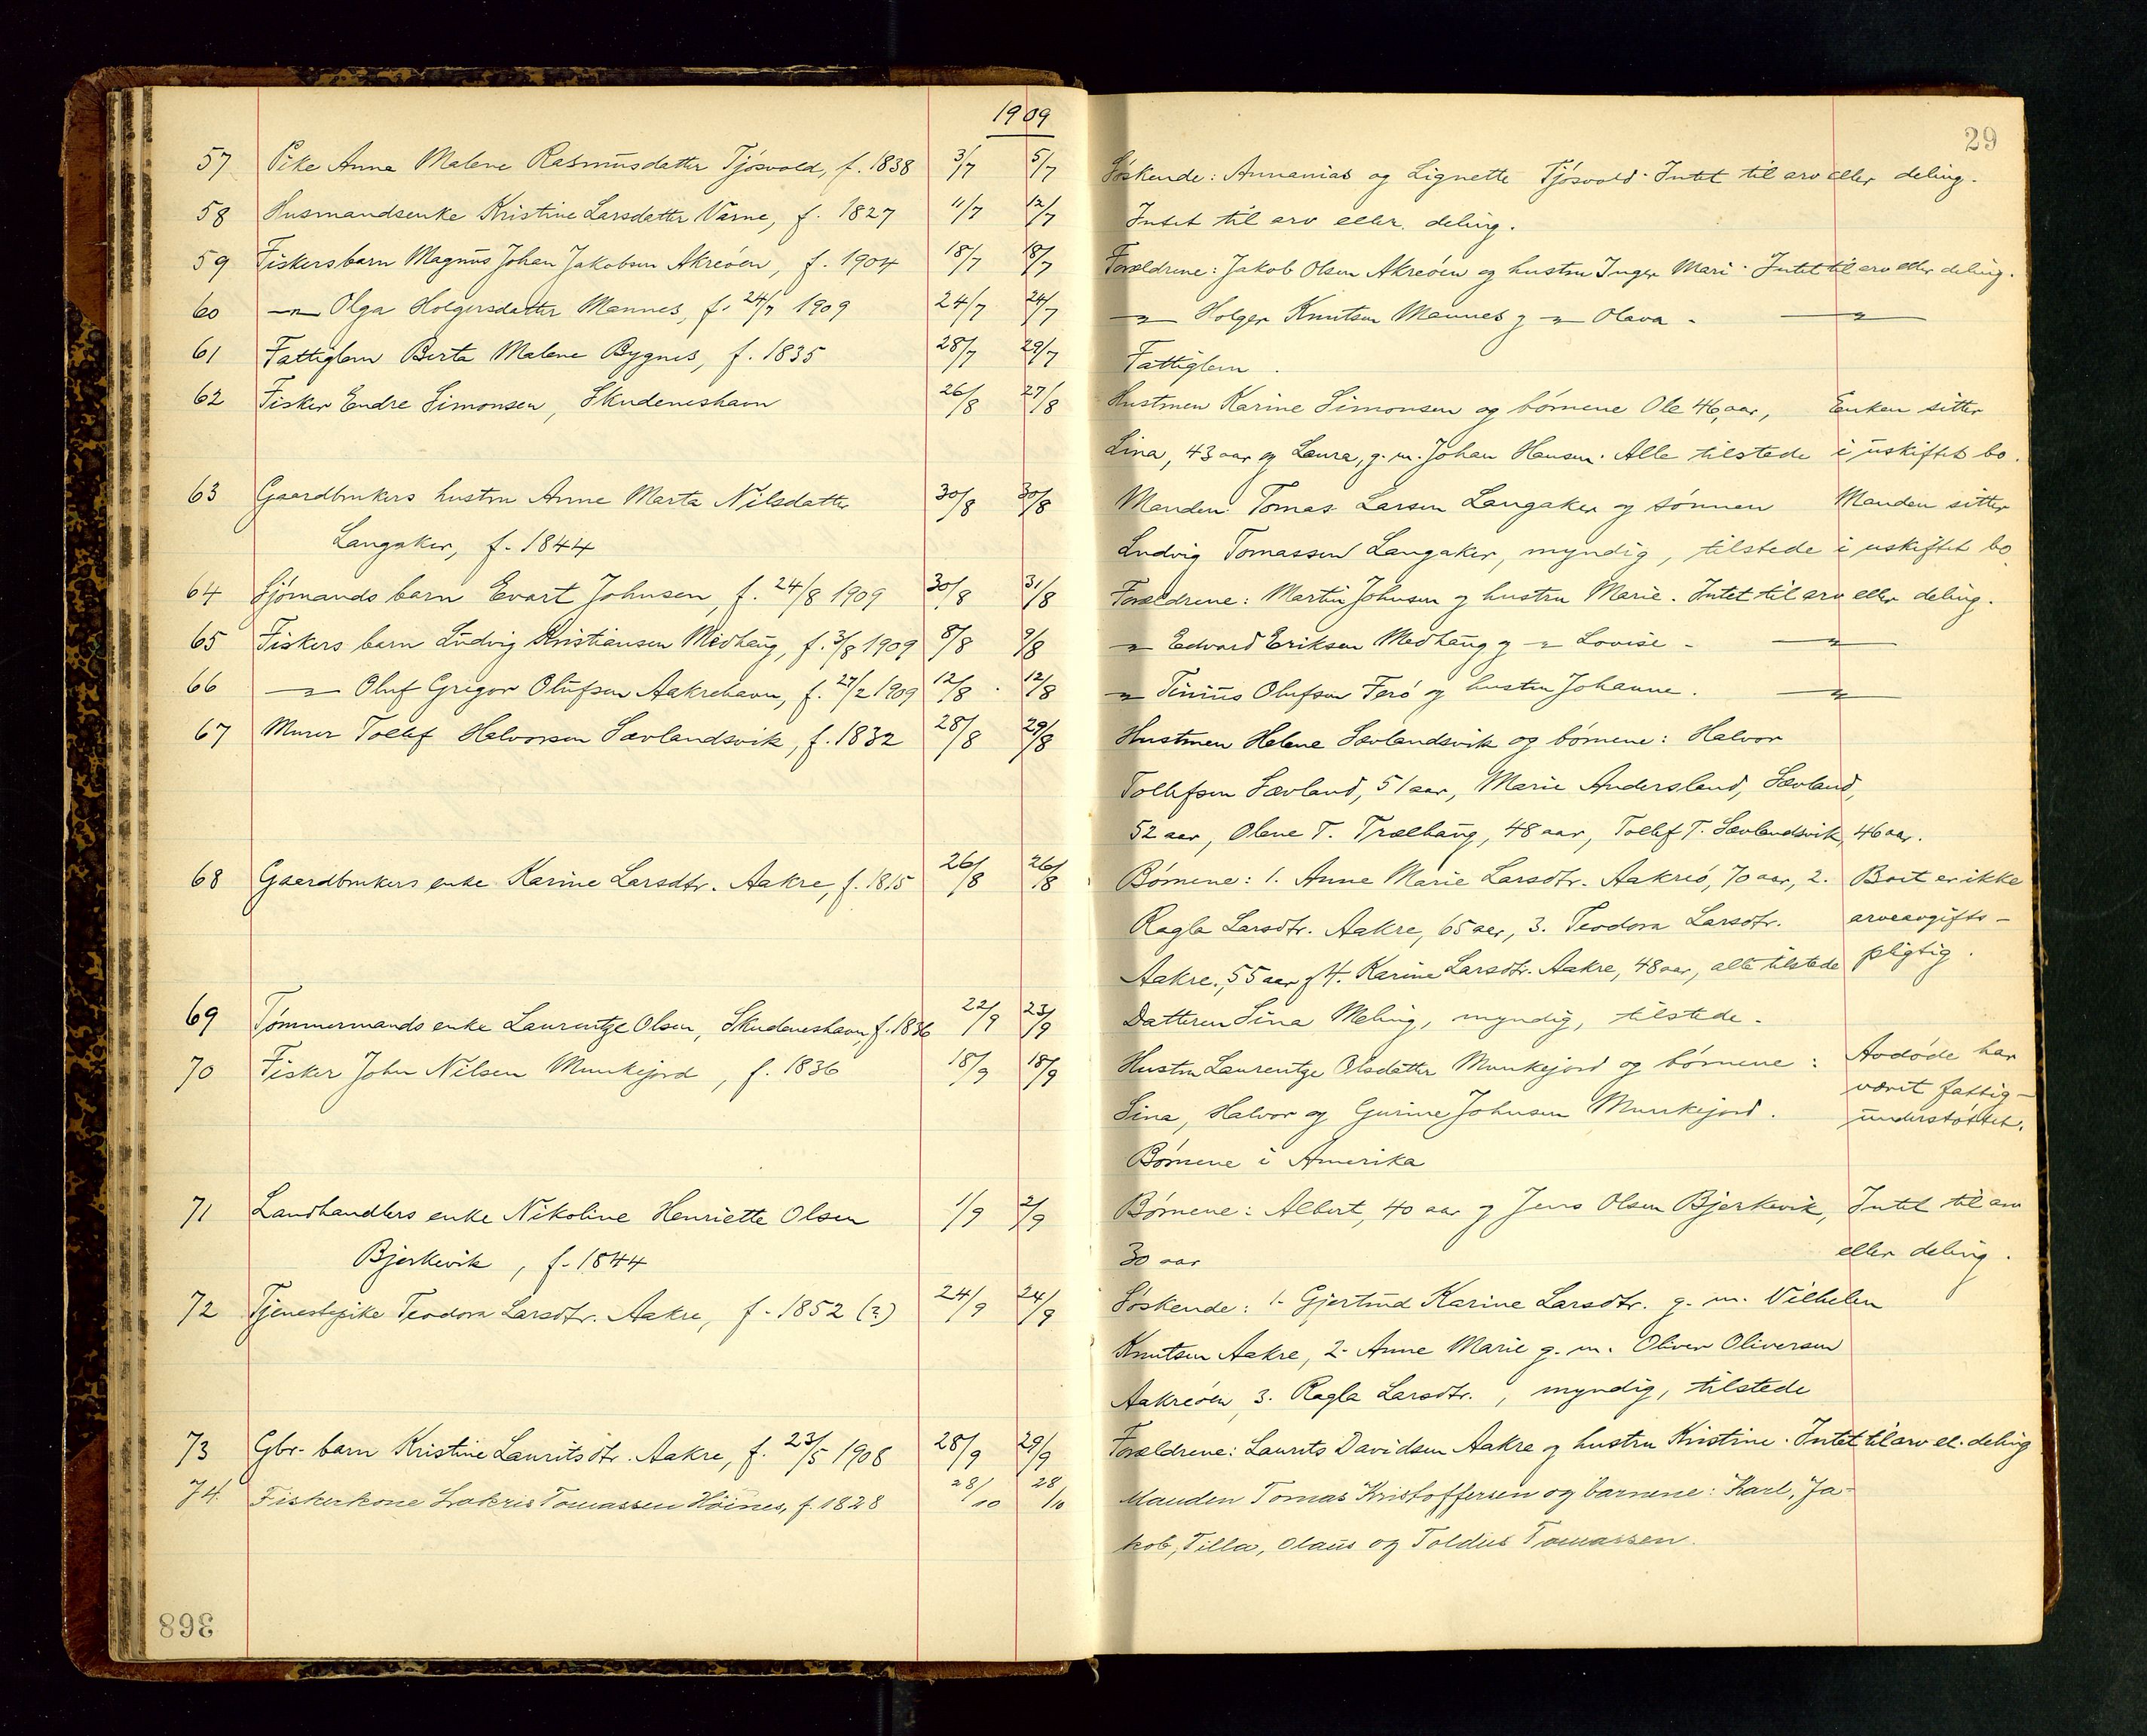 1909
29
57 Pike Anna Malene Rasmusdatter Tjósvold, f. 1838 3/7 5/7 Sóskende: Annanias og Lignette Tjósvold. Intet til arv eller deling.
58 Husmandsenke Kristine Larsdatter Varne, f. 1827 11/7 12/7 Intet til arv eller deling.
59 Fiskersbarn Magnus Johan Jakobsen Akreóen, f. 1904 18/7 18/7 Forældrene: Jakob Olsen Akreóen og hustru Inger Mari. Intet til arv eller deling.
60 —"— Olga Holgersdatter Mannes, f. 24/7 1909 24/7 24/7 —"— Holger Knutsen Mannes og —"— Olava - —"—
61 Fattiglem Berta Malene Bygnes, f. 1835 28/7 29/7 Fattiglem.
62 Fisker Endre Simonsen, Skudeneshavn 26/8 27/8 Hustruen Karine Simonsen og bórnene Ole 46 aar, Enken sitter
Lina, 43 aar og Laura, g. m. Johan Hansen. Alle tilstede i uskiftet bo.
63 Gaardbrukers hustru Anne Marta Nilsdatter 30/8 30/8 Manden Tomas Larsen Langaker og sónnen Manden sitter
Langaker, f. 1844 Ludvig Tomassen Langaker, myndig, tilstede i uskiftet bo.
64 Sjómands barn Evart Johnsen, f. 24/8 1909 30/8 31/8 Forældrene: Martin Johnsen og hustru Marie. Intet til arv eller deling.
65 Fiskers barn Ludvig Kristiansen Medhaug, f. 3/8 1909 8/8 9/8 —"— Edvard Eriksen Medhaug og —"— Lovise - —"—
66 —"— Oluf Grigor Olufsen Aakrehavn, f. 27/2 1909 12/8 12/8 —"— Tinius Olufsen Feró og hustru Johanne. —"—
67 Murer Tollef Halvorsen Sævlandsvik, f. 1832 28/8 29/8 Hustruen Helene Sævlandsvik og bórnene: Halvor
Tollefsen Sævland, 51 aar, Marie Andersland, Sævland,
52 aar, Olene T. Trælhaug, 48 aar, Tollef T. Sævlandsvik, 46 aar.
68 Gaardbrukers enke Karine Larsdtr. Aakre, f. 1815 26/8 26/8 Bórnene: 1. Anne Marie Larsdtr. Aakreó, 70 aar, 2. Boet er ikke
Ragla Larsdtr. Aakre, 65 aar, 3. Teodora Larsdtr. arveavgifts-
Aakre, 55 aar og 4. Karine Larsdtr. Aakre, 48 aar, alle tilstede pligtig.
69 Tómmermands enke Laurentze Olsen, Skudeneshavn, f. 1836 22/9 23/9 Datteren Sina Meling, myndig, tilstede.
70 Fisker John Nilsen Munkejord, f. 1836 18/9 18/9 Hustru Laurentze Olsdatter Munkejord og bórnene: Avdóde har
Sina, Halvor og Gurine Johnsen Munkejord. været fattig-
understóttet.
Bórnene i Amerika
71 Landhandlers enke Nikoline Henriette Olsen 1/9 2/9 Bórnene: Albert, 40 aar og Jens Olsen Bjerkevik, Intet til arv
Bjerkevik, f. 1844 30 aar eller deling.
72 Tjenestepike Teodora Larsdtr. Aakre, f. 1852 (?) 24/9 24/9 Sóskende: 1. Gjertrud Karine Larsdtr. g. m. Vilhelm
Knutsen Aakre, 2. Anne Marie g. m. Oliver Oliversen
Aakreóen, 3. Ragla Larsdtr., myndig, tilstede
73 Gbr. barn Kristine Lauritsdtr. Aakre, f. 23/5 1908 28/9 29/9 Forældrene: Laurits Davidsen Aakre og hustru Kristine. Intet til arv el. deling
74. Fiskerkone Lukris Tomassen Höines, f. 1828 28/10 28/10 Manden Tomas Kristoffersen og barnene: Karl, Ja-
kob, Tilla, Olaus og Toldus Tomassen.
398